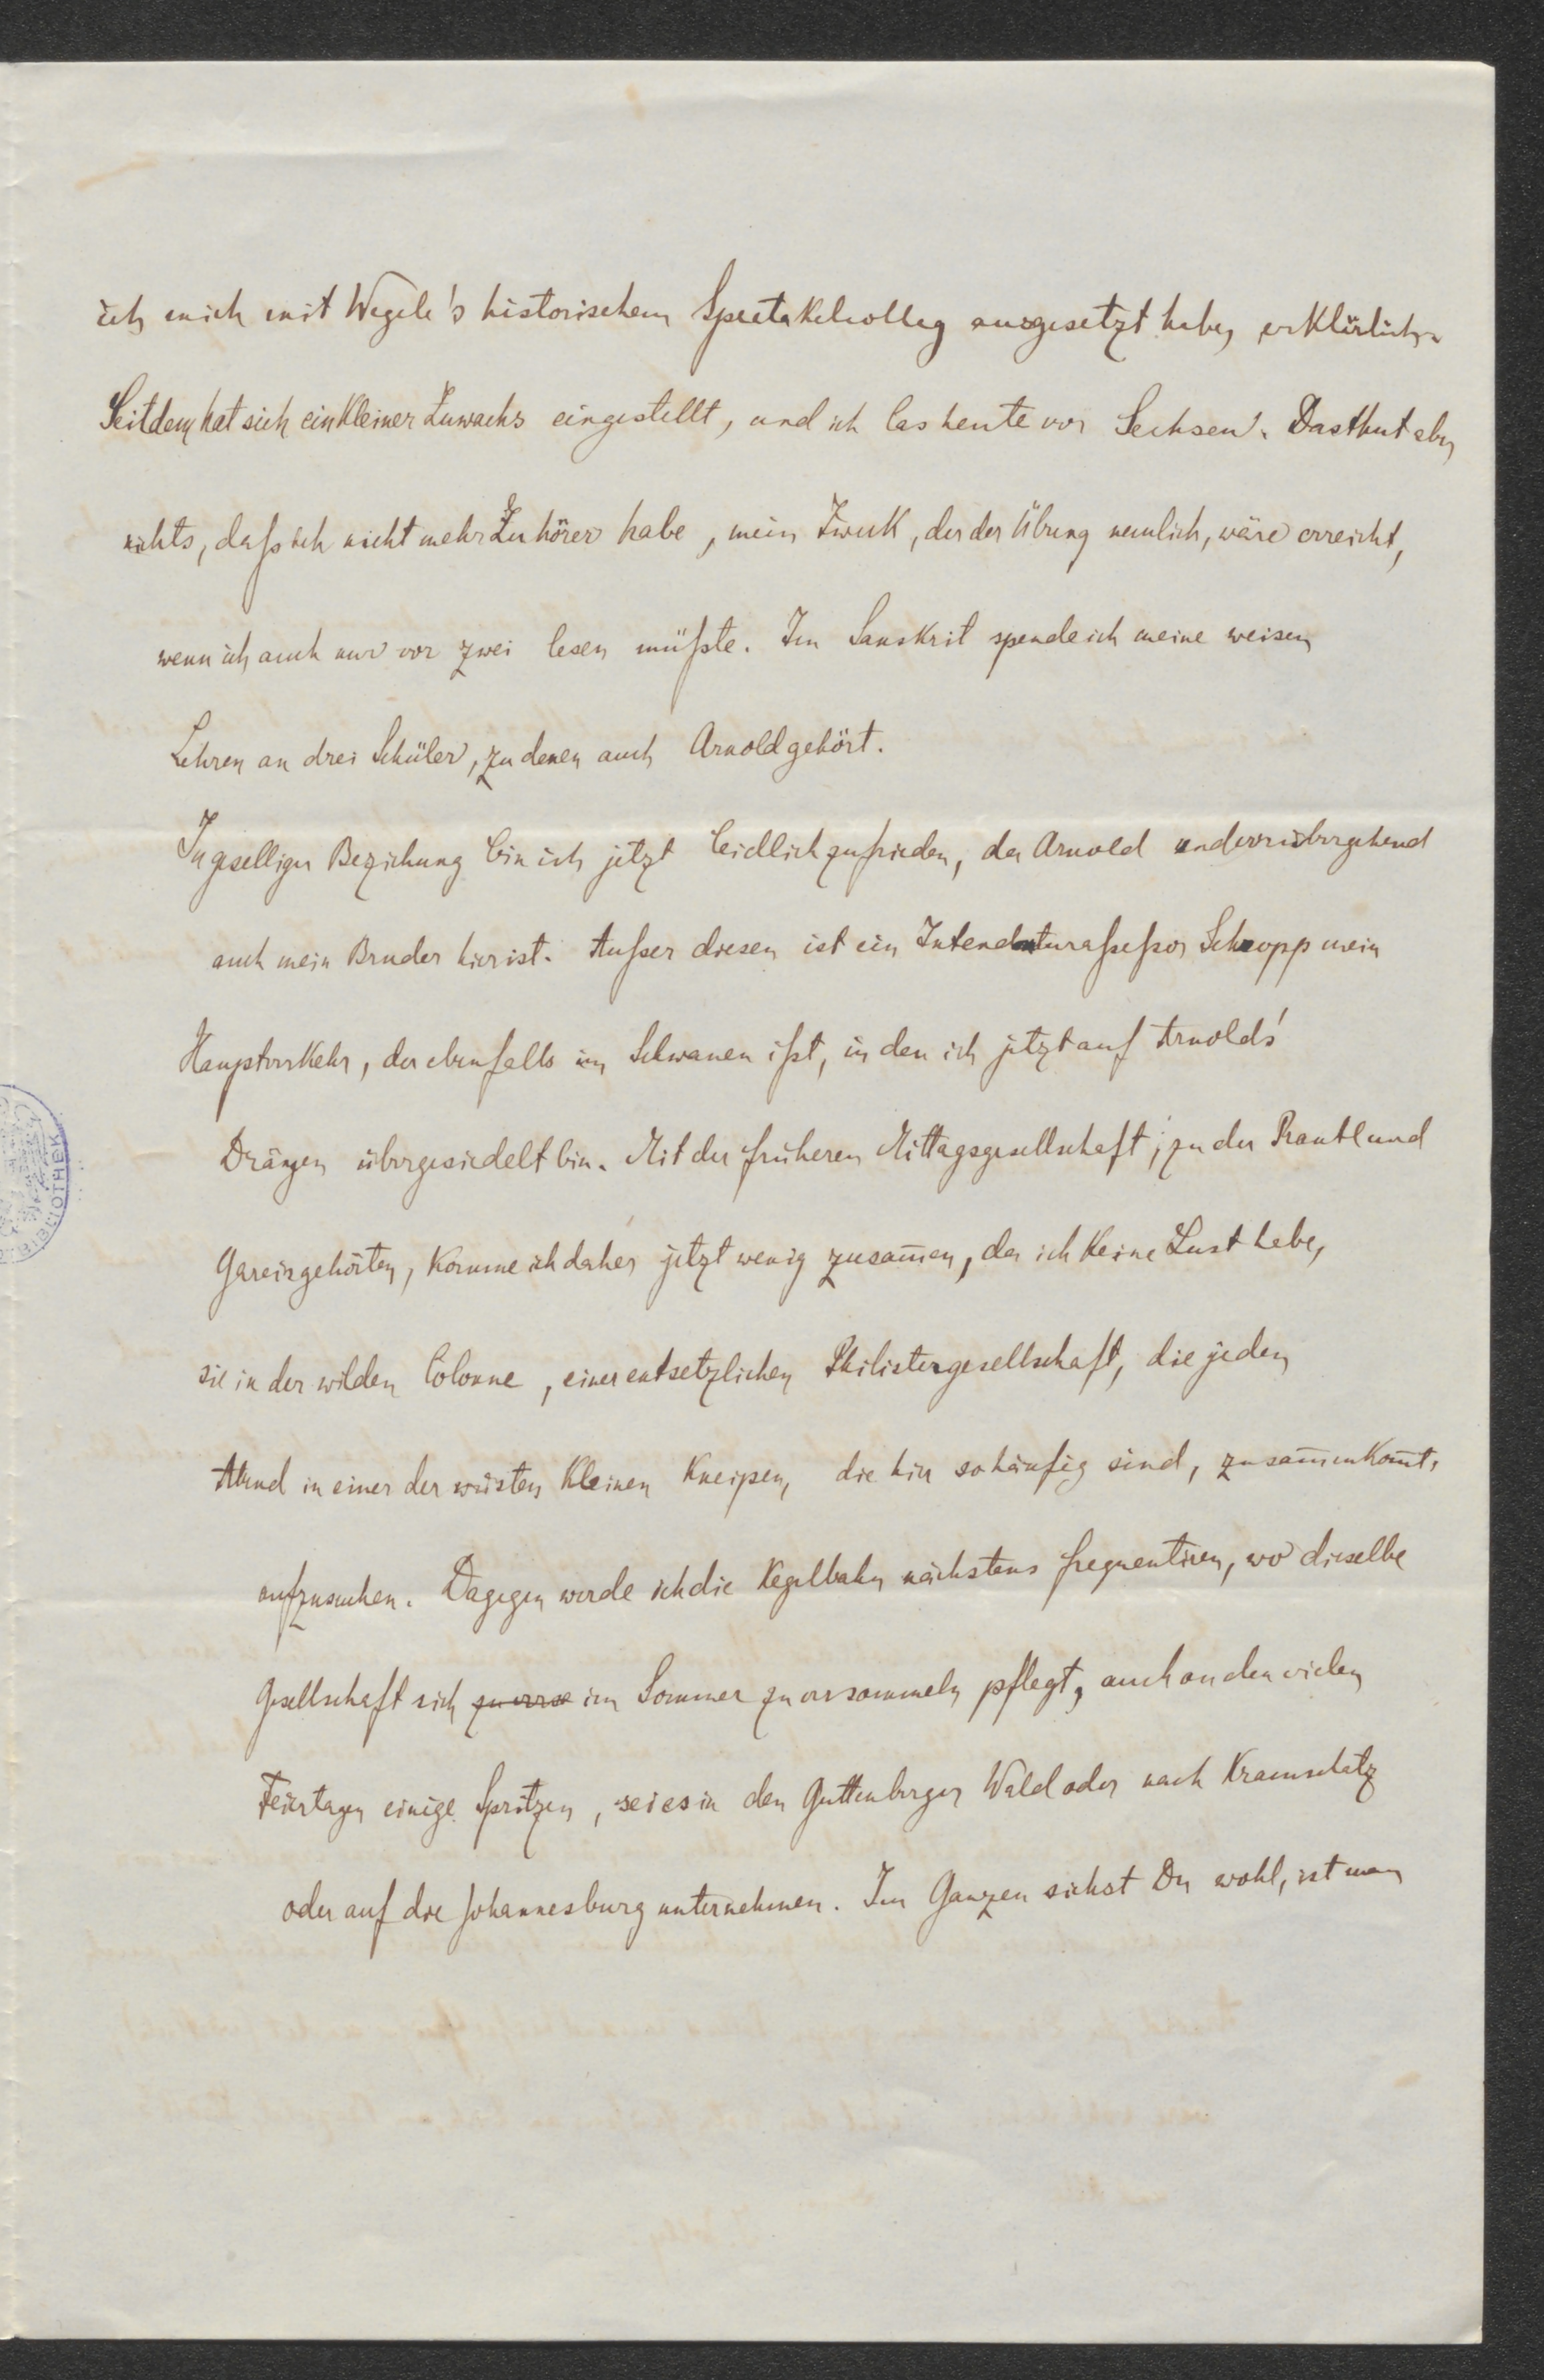 ich mich mit Wegele's historischem Spectakelcolleg ausgesetzt habe, erklärlich.
Seitdem hat sich ein kleiner Zuwachs eingestellt, und ich las heute vor Sechsen. Das thut aber
nichts, daß ich nicht mehr Zuhörer habe, mein Zweck, der der Übung nemlich, wäre erreicht,
wenn ich auch nur vor zwei lesen müßte. Im Sanskrit spende ich meine weisen
Lehren an drei Schüler, zu denen auch Arnold gehört.
In geselliger Beziehung bin ich jetzt leidlich zufrieden, da Arnold und vorübergehend
auch mein Bruder hier ist. Außer diesen ist ein Intendanturaßeßor Schropp mein
Hauptverkehr, der ebenfalls im Schwanen ißt, in den ich jetzt auf Arnolds'
Drängen übergesiedelt bin. Mit der früheren Mittagsgesellschaft, zu der Prantl und
Gareis gehörten, komme ich daher jetzt wenig zusam̄en, da ich keine Lust habe,
sie in der wilden Colonne, einer entsetzlichen Philistergesellschaft, die jeden
Abend in einer der wüsten kleinen Kneipen, die hier so häufig sind, zusam̄enkom̄t,
aufzusuchen. Dagegen werde ich die Kegelbahn nächstens frequentiren, wo dieselbe
Gesellschaft sich im Sommer zu versammeln pflegt, auch an den vielen
Feiertagen einige Spritzen, sei es in den Guttenberger Wald oder nach Kramschatz
oder auf die Johannesburg unternehmen. Im Ganzen siehst Du wohl, ist man
BIBLIOTHEK